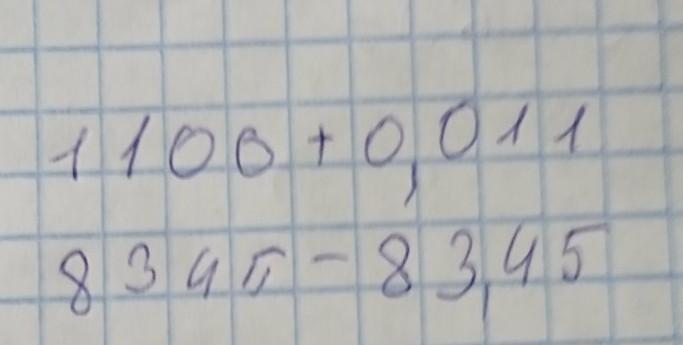 1100+0,011
8345-83,45